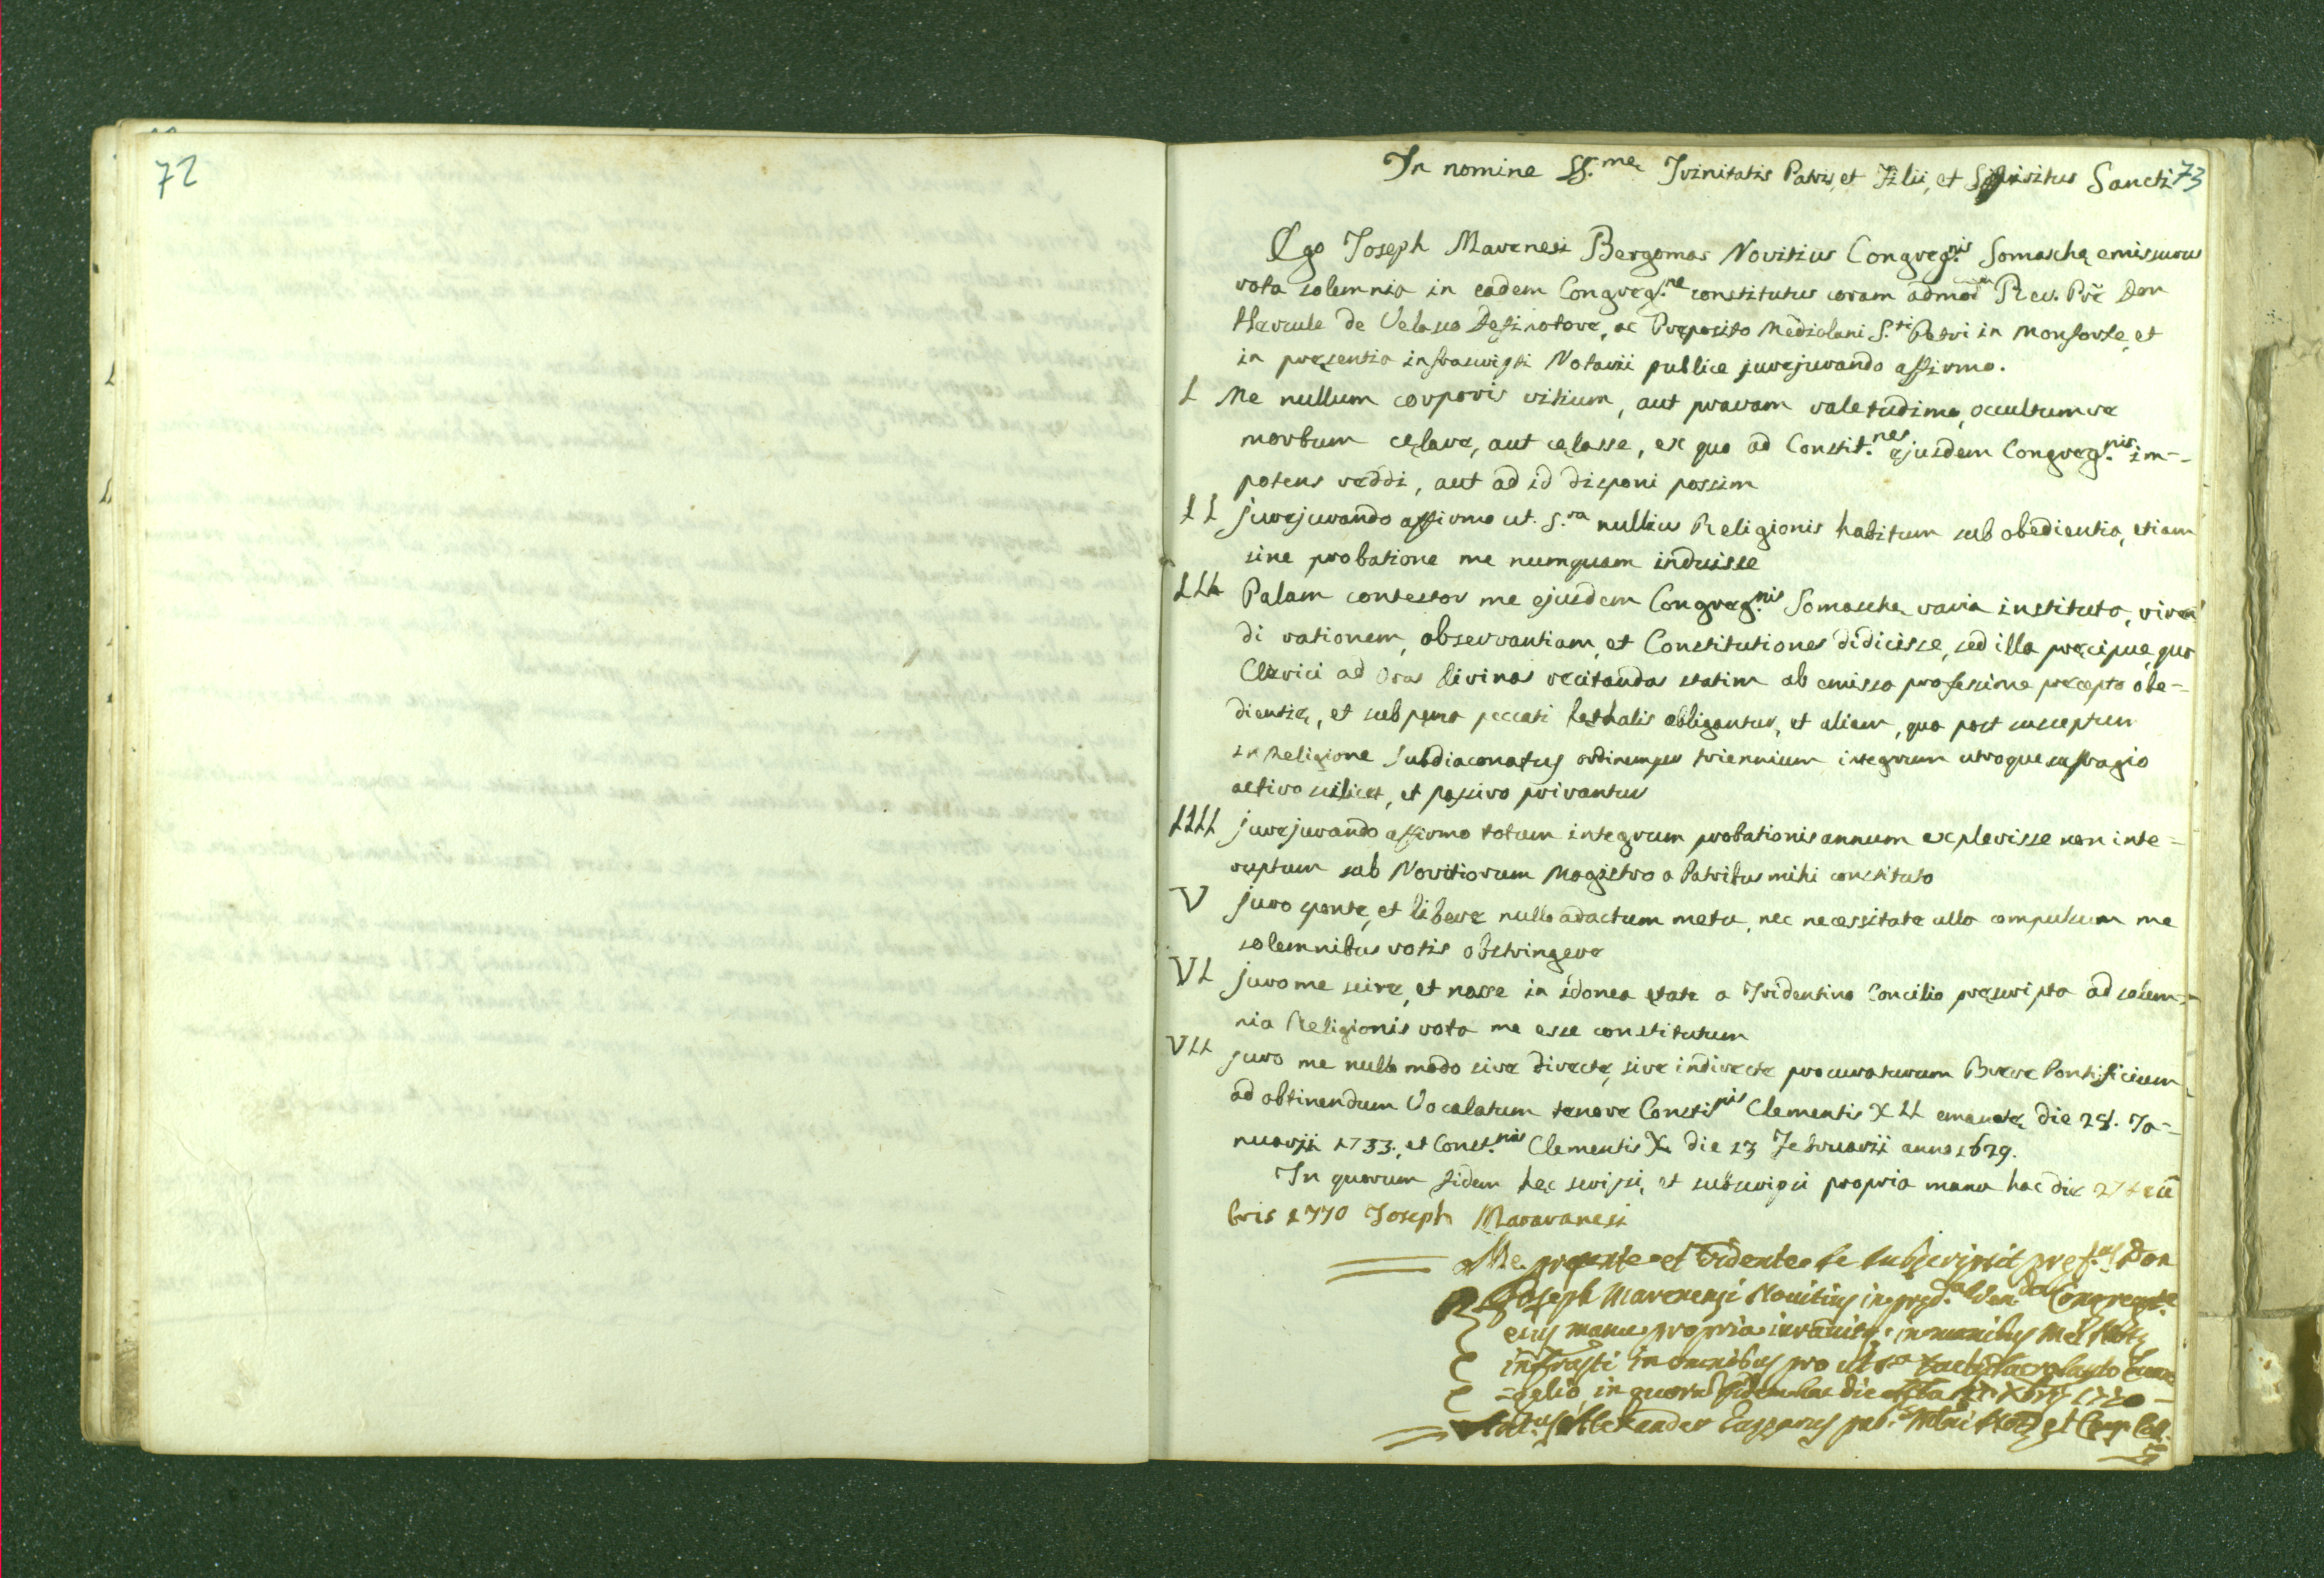 72
73
In nomine SS.mę Trinitatis Patris, et Filii, et Spiritus Sancti
Ego Joseph Marenesi Bergomas Novitius Congreg.nis Somaschę emissurus
vota solemnia in eadem Congreg.ne constitutus coram admod Rev. Prē Don
Hercule de Velasco Definotore, ac Pręposito Mediolani S.ti Petri in Monforte, et
in pręsentia infrascripti Notarii publice jurejurando affirmo.
I Me nullum corporis vitium, aut pravam valetudine, occultumve
morbum cęlare, aut cęlasse, ex quo ad Constit.nes ejusdem Congreg.nis im--
potens reddi, aut ad id disponi possim
II jurejurando affirmo ut. S.ra nullius Religionis habitum sub obedientia, etiam
sine probatione me numquam induisse
III Palam contestor me ejusdem Congreg.nis Somaschę varia instituta, viven
di rationem, observantiam, et Constitutiones didicisse, sed illa pręcipue, quo
Clerici ad Oras divinas recitandas statim ab emissa professione pręcepto obe=
dientię, et sub pęna peccati lethalis obligantur, et aliam, qua post susceptum
in Religione Subdiaconatus ordinem per triennium integrum utroque suffragio
activo scilicet, et passivo privantur
IIII jurejurando affirmo totum integrum probationis annum explevisse non inte=
ruptum sub Novitiorum Magistro a Patribus mihi constituto
V juro sponte, et libere nullo adactum metu, nec necessitate ulla compulsum me
solemnibus votis obstringere
VI juro me scire, et nosse in idonea ętate a Tridentino Concilio pręscripta ad solem=
nia Religionis vota me esse constitutum
VII juro me nullo modo sive directe, sive indirecte procuraturum Breve Pontificium
ad obtinendum Vocalatum tenore Constinis Clementis XII emanatę die 28. Ja=
nuarji 1733., et Const.nis Clementis X die 13 Februarii anno 1629.
In quorum fidem hęc scripsi, et subscripsi propria manu hac die 27
bris 1770 Joseph Maravanesi
Me pręsente et vidente se subscripsit pręf.us Don
Joseph Marenensi Novitius in pręd.a Ven.da Congregat.e
eius manu propria iuravitq. in manibus Mei Notz
infrasti in omnibus pro ut s.a
in quorū fidem hac die
Alexander pub.s et